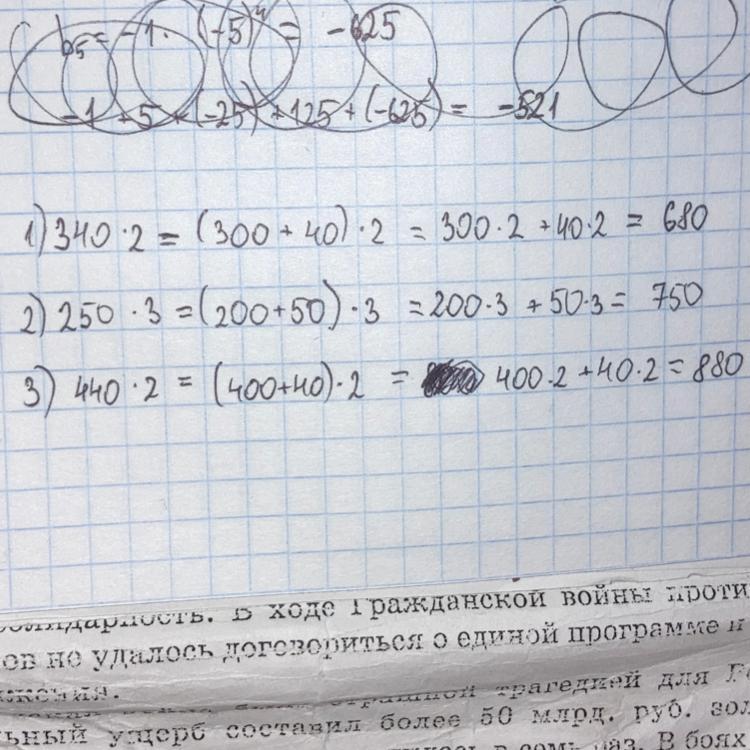 b₅ = -1 · (-5)⁴ = -625
-1 + 5 + (-25) + 125 + (-625) = -521
1) 340 · 2 = (300 + 40) · 2 = 300 · 2 + 40 · 2 = 680
2) 250 · 3 = (200+50) · 3 = 200·3 + 50·3 = 750
3) 440 · 2 = (400+40)·2 = 400·2 + 40·2 = 880
В ходе Гражданской войны проти
ов не удалось договориться о единой программе и
жения.
трагедией для
льный ущерб составил более 50 млрд. руб. зол
в семь раз. В боях